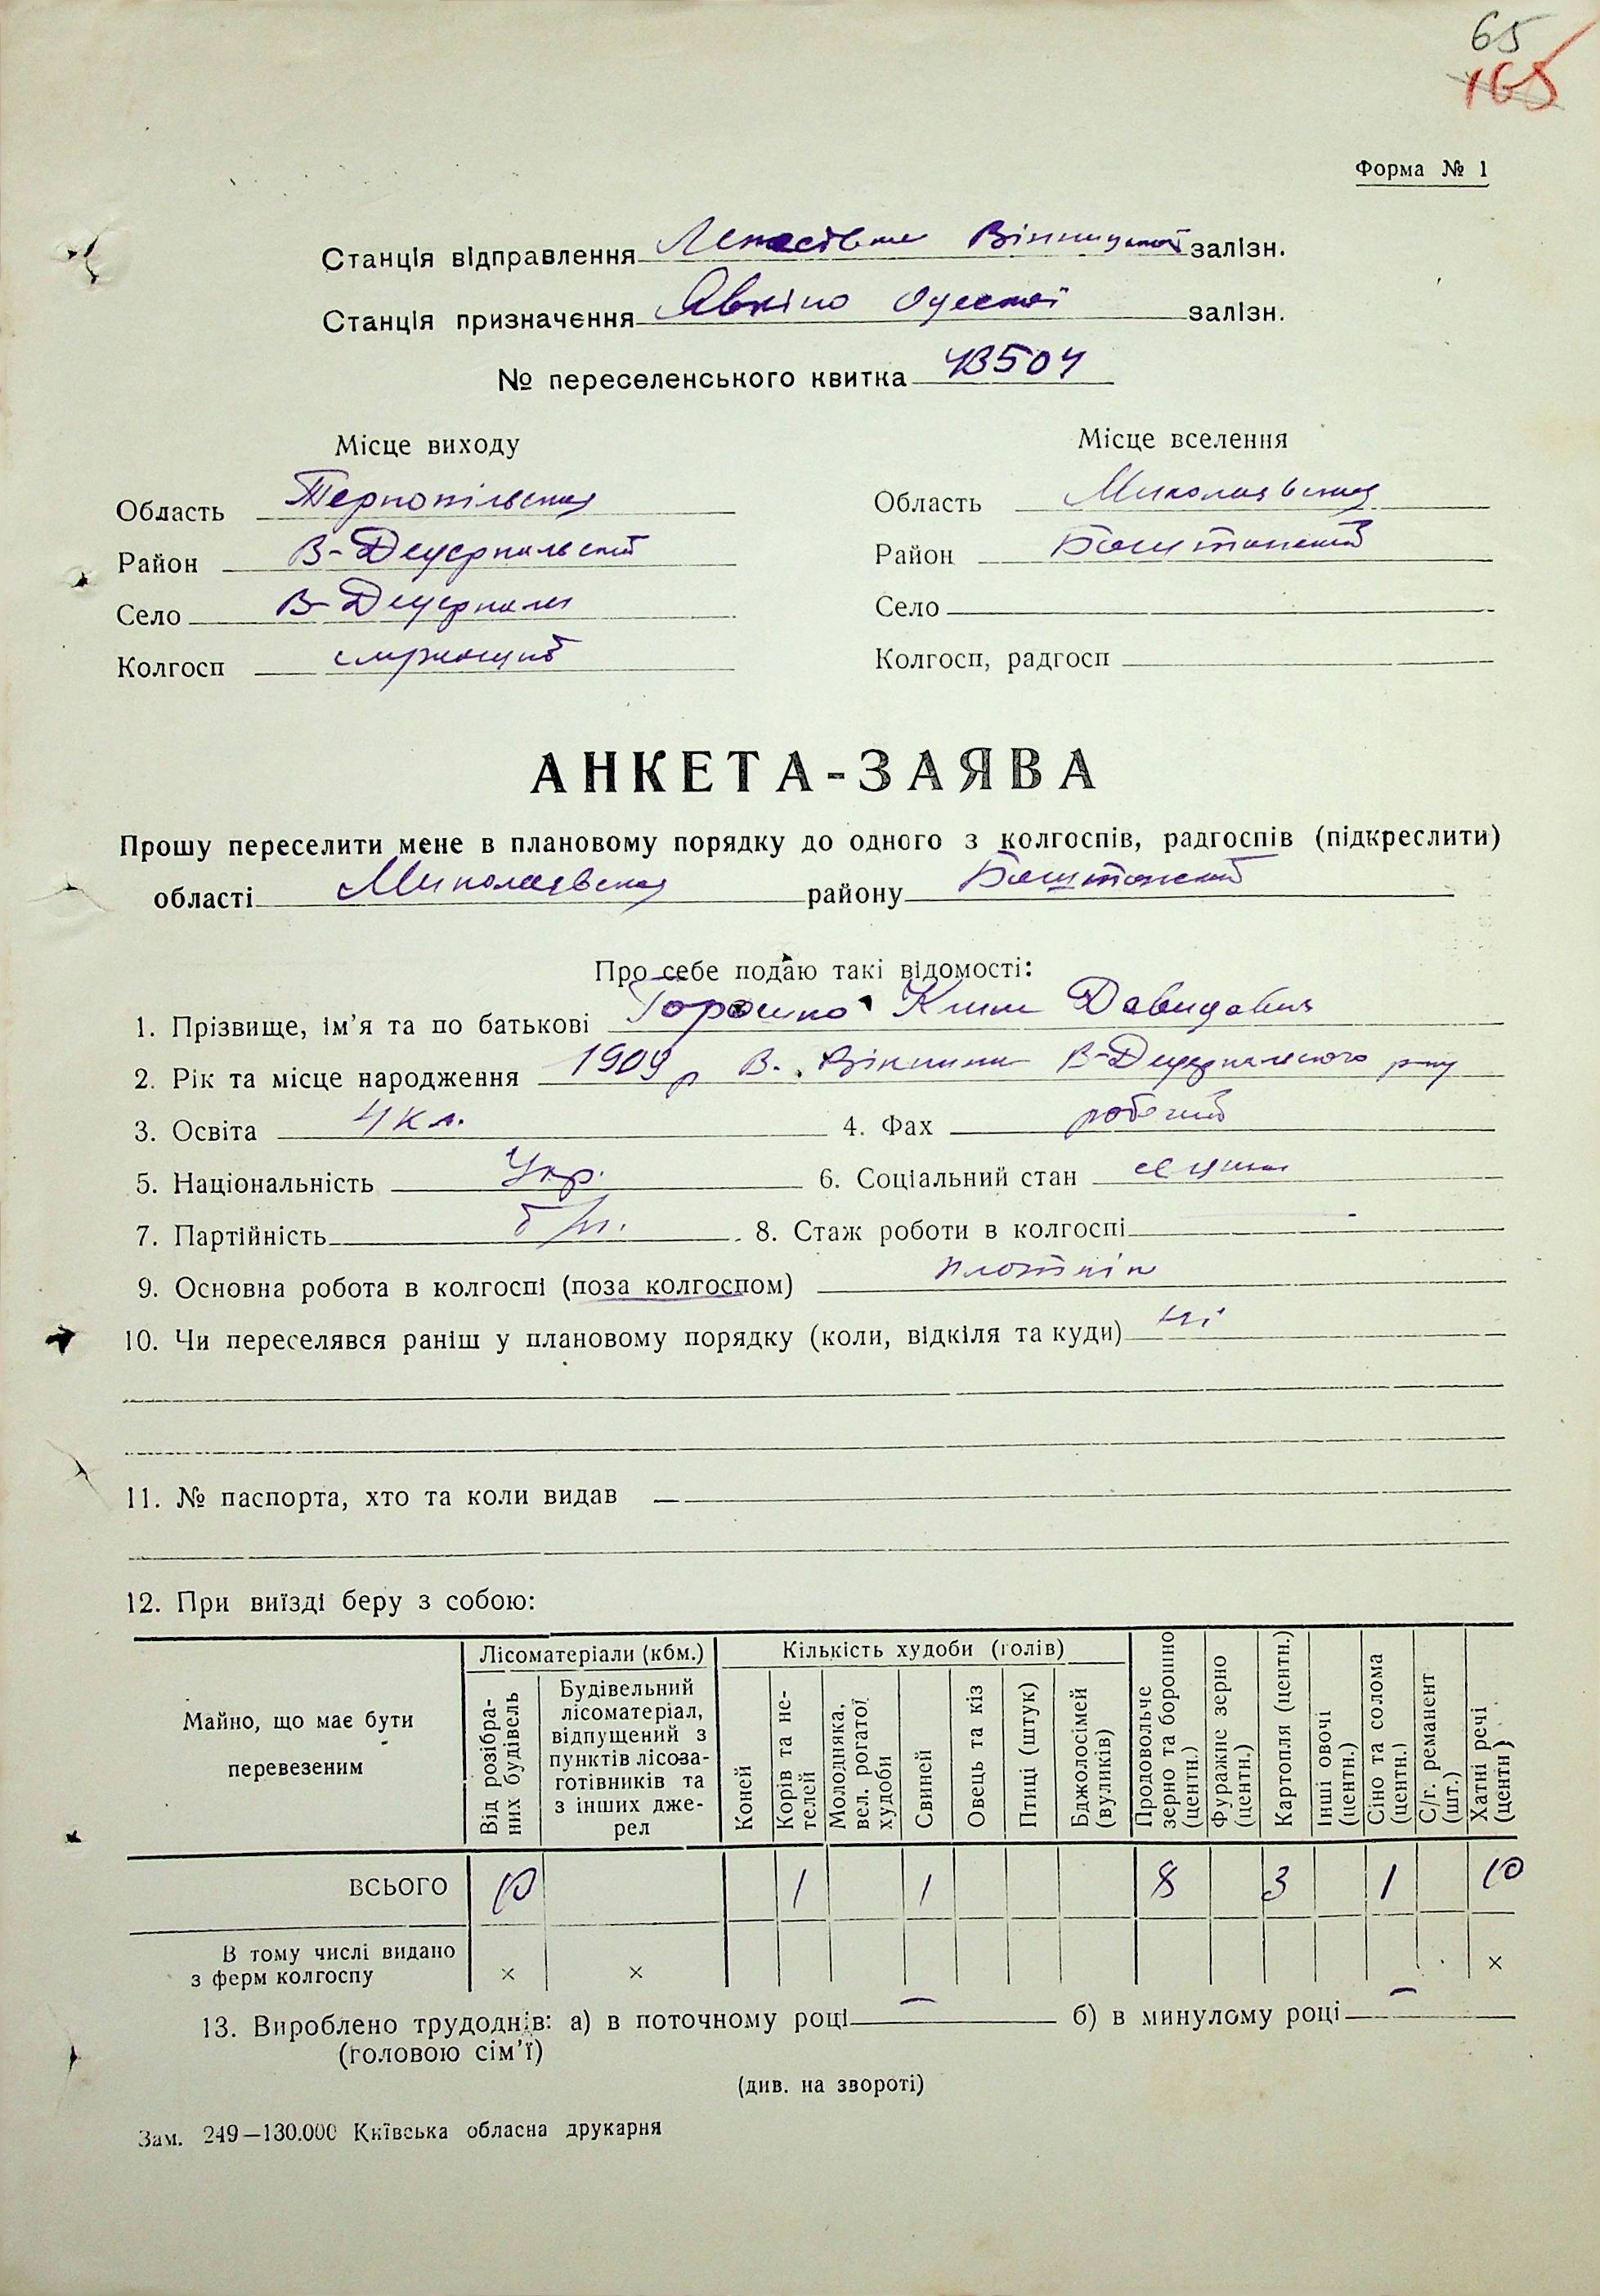 65
165
Форма № 1
Станція відправлення Вінницької залізн.
Станція призначення Явкіно Одеської залізн.
№ переселенського квитка 43504
Місце виходу
Місце вселення
Область Тернопільська
Область Миколаївська
Район В-Дедеркальський
Район Баштанський
Село В-Дедеркали
Село
Колгосп
Колгосп, радгосп
АНКЕТА-ЗАЯВА
Прошу переселити мене в плановому порядку до одного з колгоспів, радгоспів (підкреслити)
області Миколаївська району Баштанський
Про себе подаю такі відомості:
1. Прізвище, ім’я та по батькові Горошко Клим Давидович
2. Рік та місце народження 1909 р В. В-Дедеркальського р-ну
3. Освіта 4 кл. 4. Фах робочий
5. Національність Укр. 6. Соціальний стан
7. Партійність б/п. 8. Стаж роботи в колгоспі —
9. Основна робота в колгоспі (поза колгоспом) плотнік
10. Чи переселявся раніш у плановому порядку (коли, відкіля та куди) ні
11. № паспорта, хто та коли видав —
12. При виїзді беру з собою:
Майно, що має бути перевезеним
Лісоматеріали (кбм.)
Кількість худоби (голів)
Від розібраних будівель
Будівельний лісоматеріал, відпущений з пунктів лісозаготівників та з інших джерел
Коней
Корів та нетелей
Молодняка, вел. рогатої худоби
Свиней
Овець та кіз
Птиці (штук)
Бджолосімей (вуликів)
Продовольче зерно та борошно (центн.)
Фуражне зерно (центн.)
Картопля (центн.)
Інші овочі (центн.)
Сіно та солома (центн.)
С/г. реманент (шт.)
Хатні речі (центн.)
ВСЬОГО 10 1 1 8 3 1 10
В тому числі видано з ферм колгоспу × × ×
13. Вироблено трудоднів: а) в поточному році — б) в минулому році —
(головою сім’ї)
(див. на звороті)
Зам. 249—130.000 Київська обласна друкарня